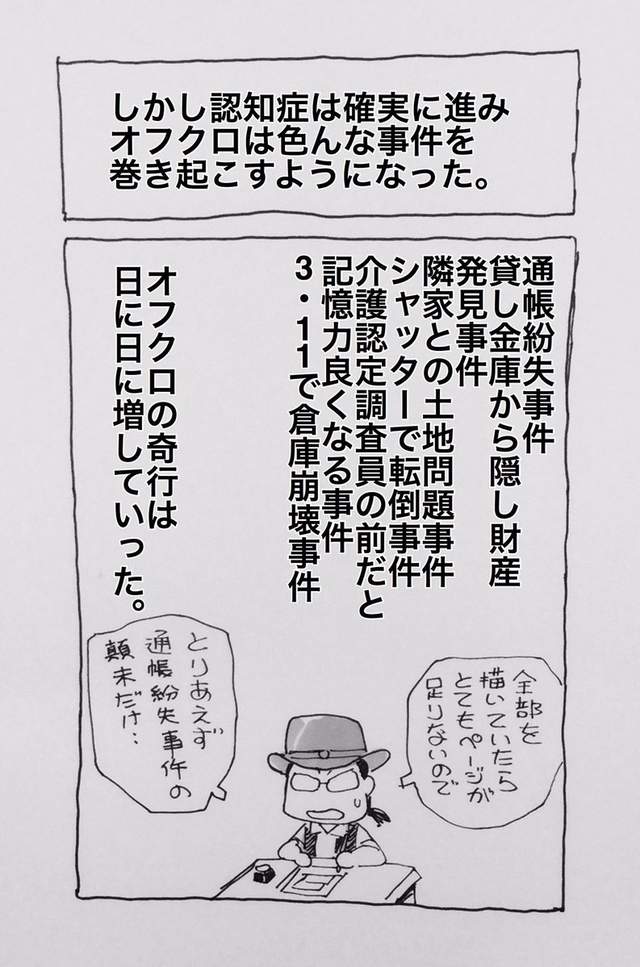 しかし認知症は確実に進み
オフクロは色んな事件を
巻き起こすようになった。
通帳紛失事件
貸し金庫から隠し財産
発見事件
隣家との土地問題事件
シャッターで転倒事件
介護認定調査員の前だと
記憶力良くなる事件
3・11で倉庫崩壊事件
オフクロの奇行は
日に日に増していった。
全部を
描いていたら
とてもページが
足りないので
とりあえず
通帳紛失事件の
顛末だけ…